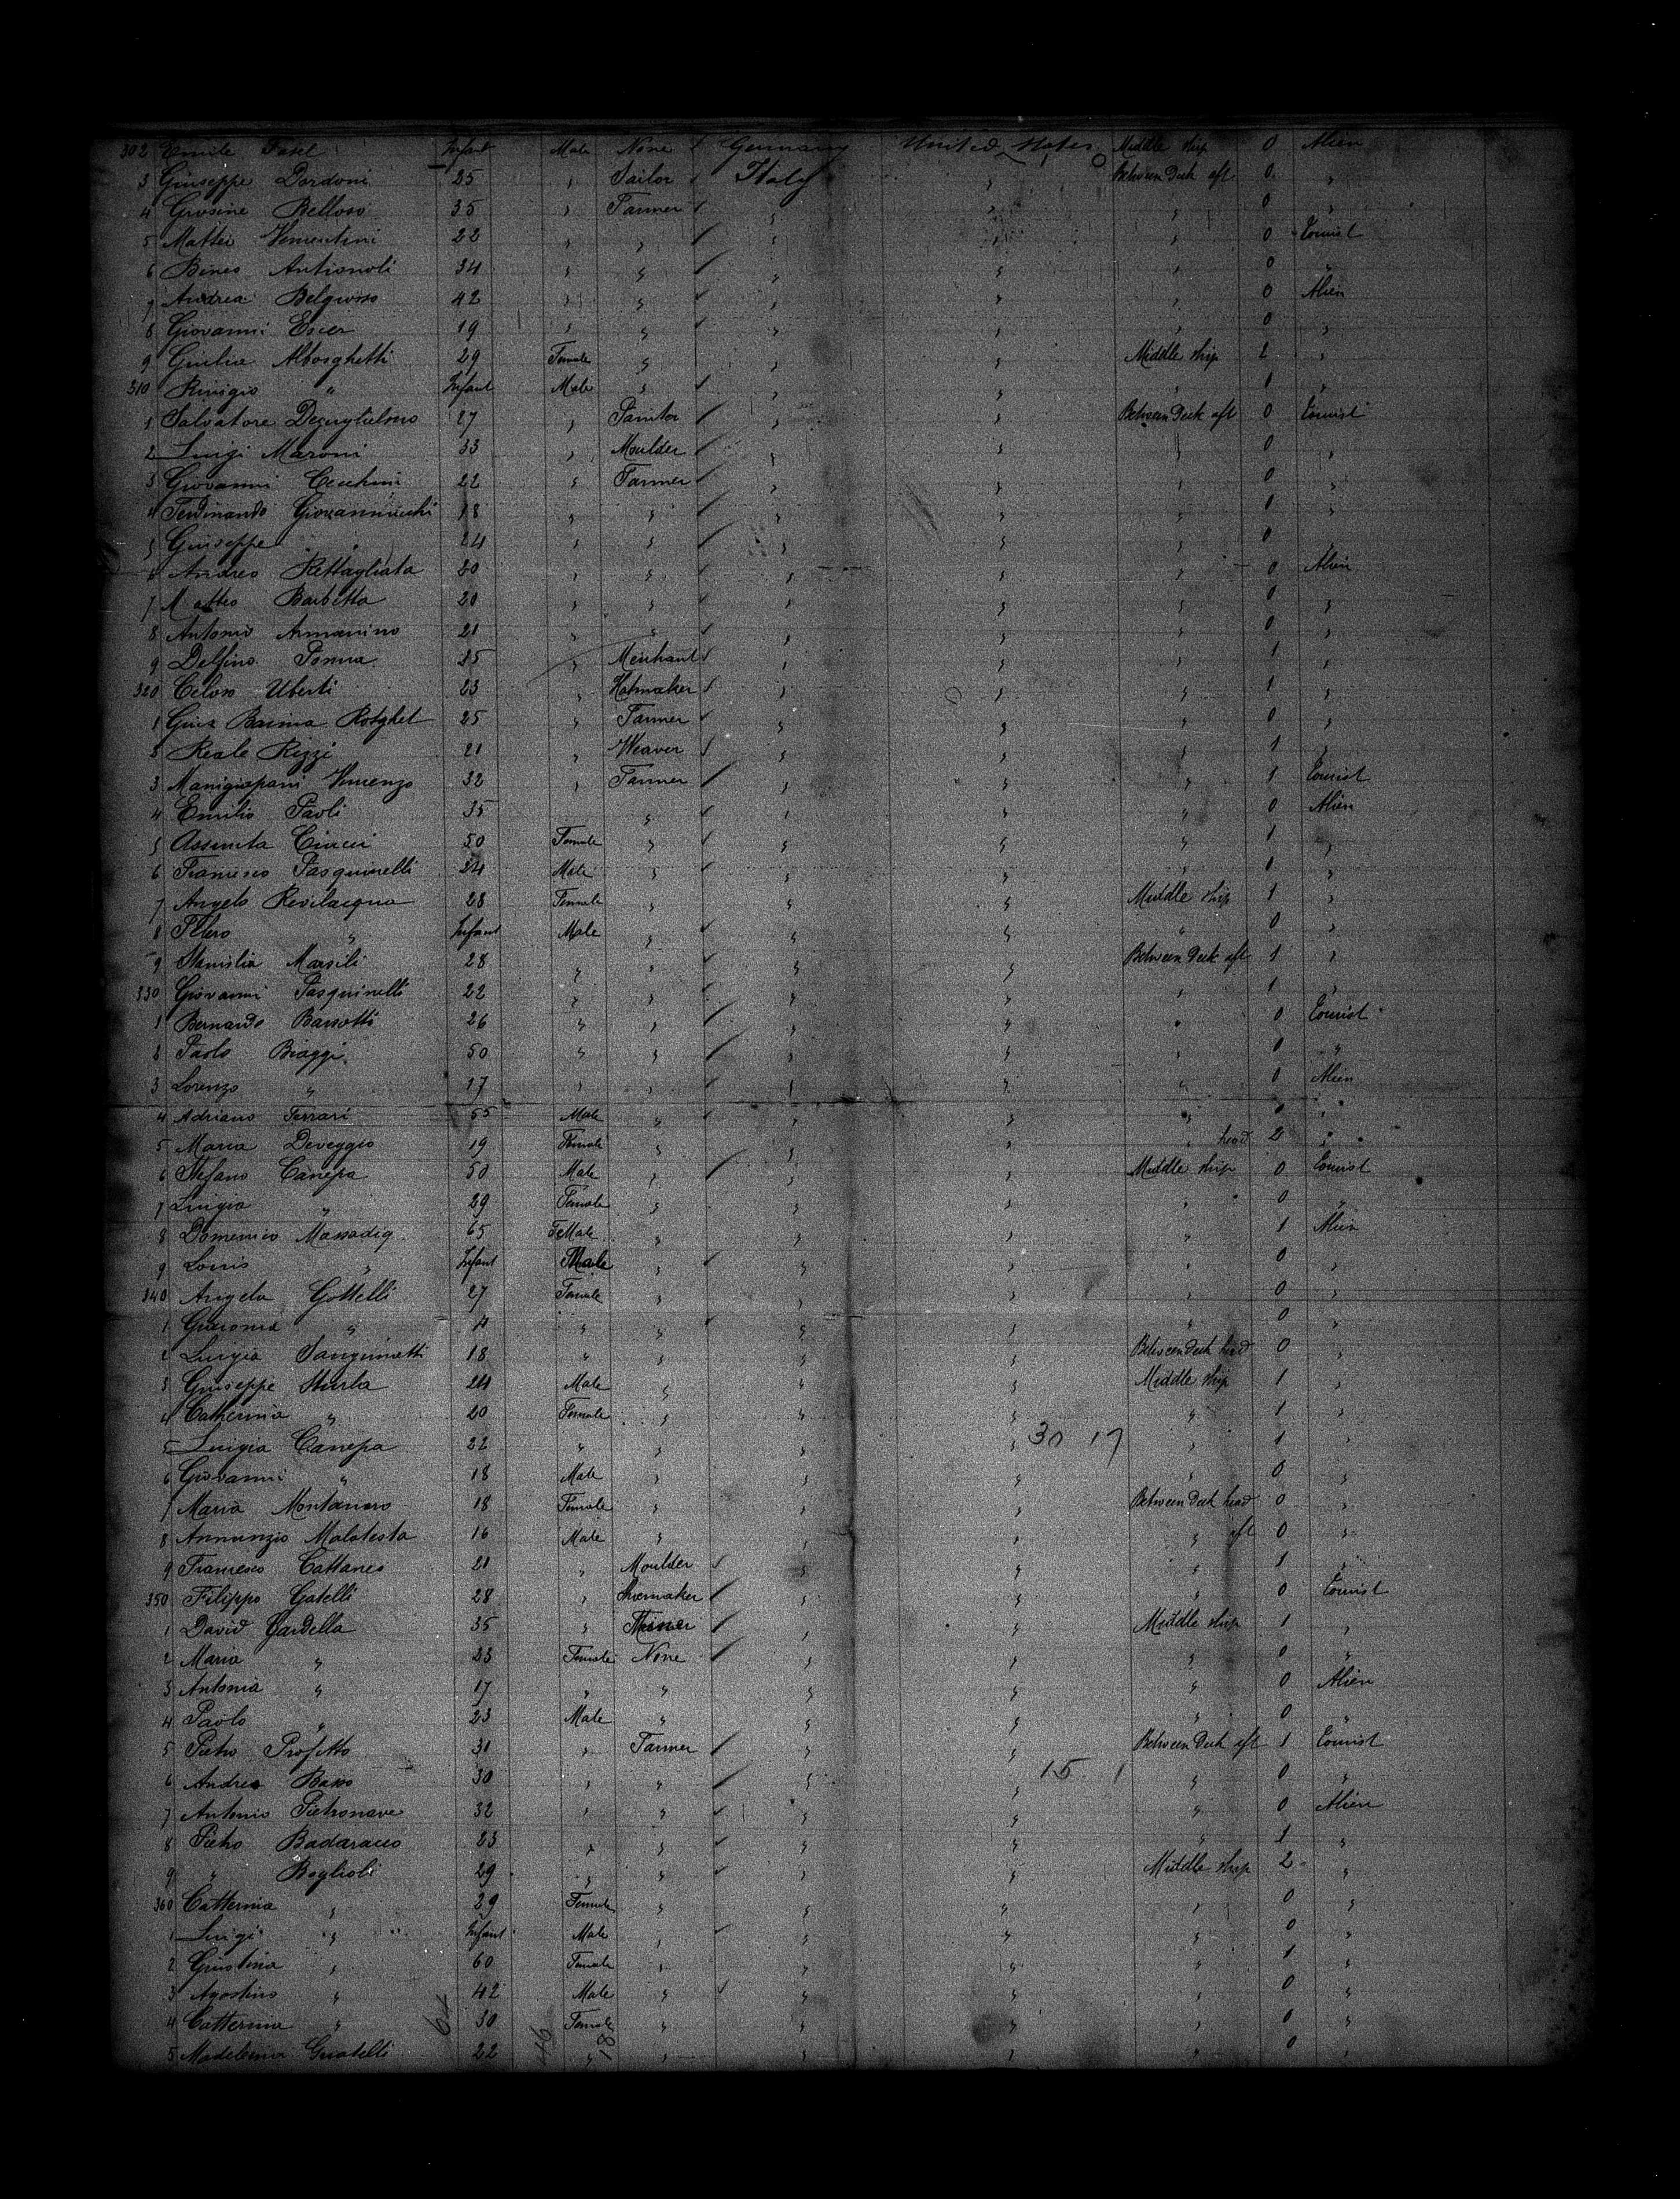 302 Emile Fasel Infant Male None / Germany United States Middle ship 0 Alien
3 Giuseppe Dordoni 25 " Sailor / Italy " Between Deck aft 0 "
4 Grosine Belloso 35 " Farmer / " " " 0
5 Matteo 22 " " / " " " 0 Tourist
6 Bineo Antionoli 34 " " / " " " 0 "
7 Andrea 42 " " / " " " 0 Alien
8 Giovanni Escer 19 " " / " " " 0 "
9 Giulia Alborghetti 29 Female " " " Middle ship 2 "
310 " Infant Male " / " " " 1 "
1 Salvatore 27 " / " " Between Deck aft 0 Tourist
2 Luigi Maroni 33 " Moulder / " " " 0 "
3 Giovanni Cecchini 22 " Farmer / " " " 0 "
4 Ferdinando 18 " " / " " " 0 "
5 Giuseppe " 24 " " / " " " 0 "
6 Andreo Rettagliata 20 " " / " " " 0 Alien
7 Matteo Barbetta 20 " " / " " " 0 "
8 Antonio Armanino 21 " " / " " " 0 "
9 Delfino Poma " Merchant / " " " 1 "
320 Celoso Uberti 23 " Hatmaker / " " " 1 "
1 25 " Farmer / " " " 0 "
2 Reale Rizzi 21 " Weaver / " " " 1 "
3 Vincenzo 32 " Farmer / " " " 1 Tourist
4 Emilio Paoli 35 " / " " " 0 Alien
5 Assunta Ciucci 50 Female " / " " " 1 "
6 Francesco Pasquinelli 24 Male " / " " " 0 "
7 Angelo Revilacqua 28 Female " " " Middle ship 1 "
8 " Infant Male " " " " 0 "
9 Stanislia Marsili 28 " " / " " Between Deck aft 1 "
330 Giovanni Pasquinelli 22 " " / " " " 1 "
1 Bernardo Barsotti 26 " " / " " " 0 Tourist
2 Paolo Biaggi 50 " " / " " " 0 "
3 Lorenzo " 17 " " / " " " 0 Alien
4 Adriano Ferrari 55 Male " / " " " 0 "
5 Maria Deveggio 19 Female " " " " head 2 "
6 Stefano Canepa 50 Male " / " " Middle ship 0 Tourist
7 Luigia " 29 Female " " " " 0 "
8 Domenico 65 FeMale " " " " 1 Alien
9 Louis " Infant Male " / " " " 0 "
340 Angela Gottelli 27 Female " " " " 0 "
1 " " " / " " " 0 "
2 Luigia Sanguinetti 18 " " " " Between Deck head 0 "
3 Giuseppe Sturla 24 Male " " " Middle ship 1 "
4 Catherina " 20 Female " " " " 1 "
5 Luigia Canepa 22 " " " " 30 17 " 1 "
6 Giovanni " 18 Male " " " " 0 "
7 Maria Montanaro 18 Female " " " Between Deck head 0 "
8 Annunzio Malatesta 16 Male " " " " aft 0 "
9 Francesco Cattaneo 21 " Moulder / " " " 1 "
350 Filippo Gatelli 28 " Shoemaker / " " " 0 Tourist
1 David Gardella 35 " Miner / " " Middle ship 1 "
2 Maria " 23 Female None / " " " 0 "
3 Antonia " 17 " " " " " 0 Alien
4 Paolo " 23 Male " " " " 0 "
5 Pietro Profetto 31 " Farmer / " " Between Deck aft 1 Tourist
6 Andrea Basso 30 " " / " " 15 1 " 0 "
7 Antonio Pietronave 32 " " / " " " 0 Alien
8 Pietro Badaracco 23 " " / " " " 1 "
9 " Boglioli 29 " " / " " Middle ship 2 "
360 Catterina " 29 Female " " " " 0 "
1 Luigi " Infant Male " / " " " 0 "
2 Giustina " 60 Female " " " " 1 "
3 Agostino " 42 Male " / " " " 0 "
4 Catterina " 30 Female " " " " 0 "
5 Madelenia Guatelli 22 " " " " " 0 "
64 46 18